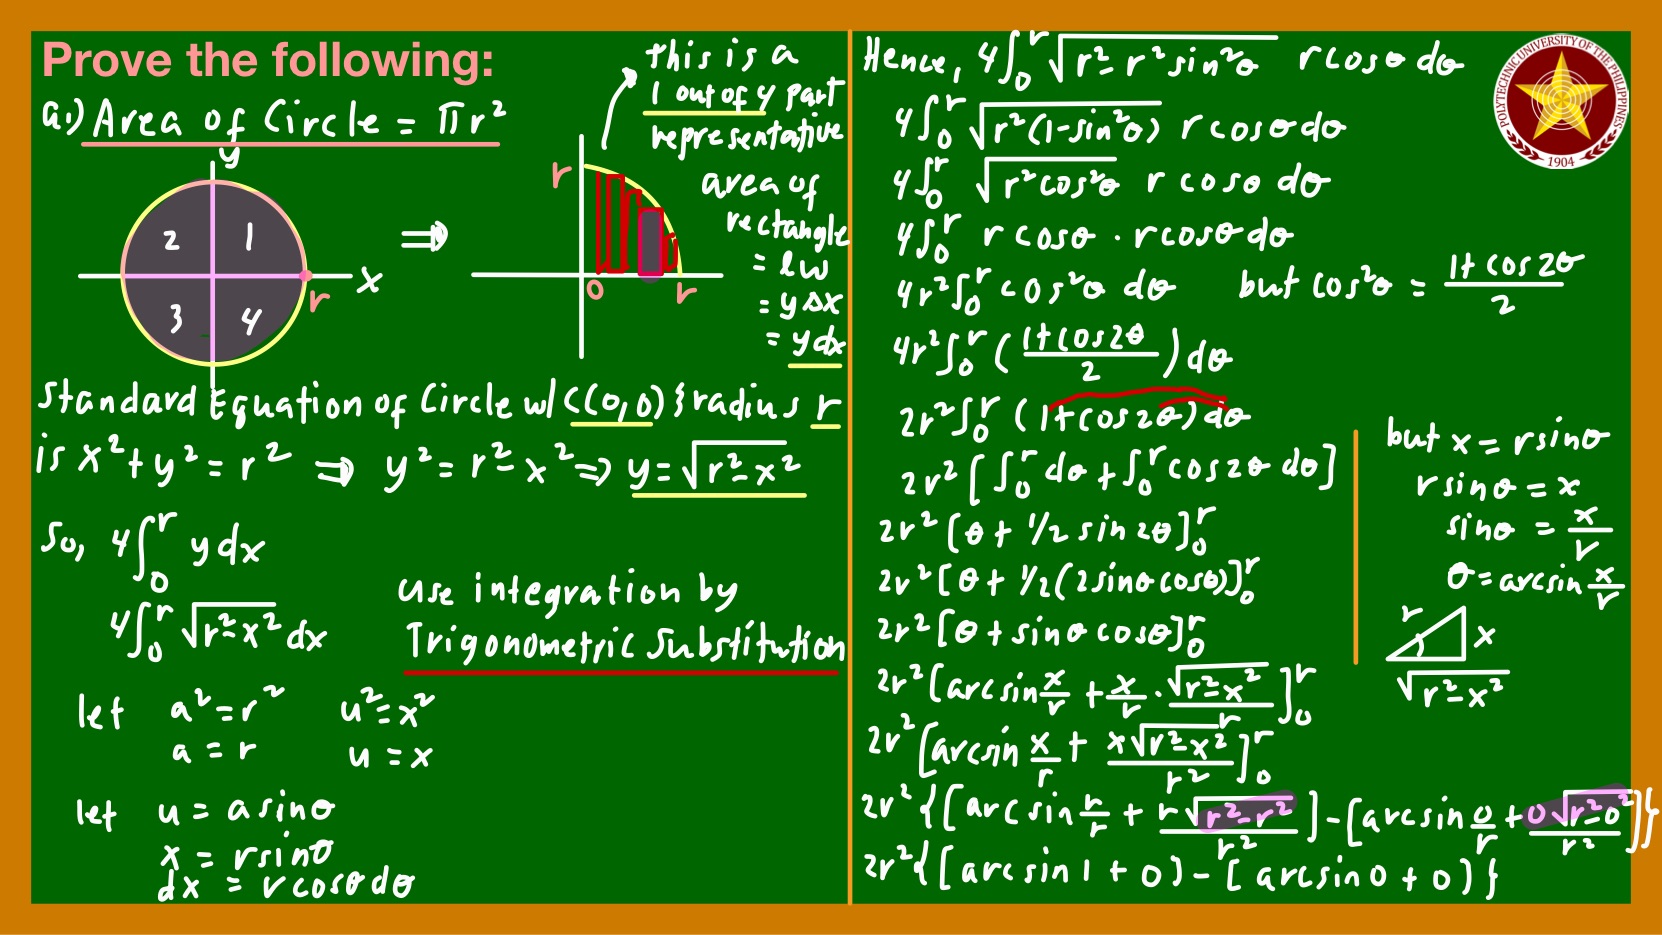 Prove the following:
a.) Area of Circle = πr²
y
2 1
3 4
x
r
⇒
r
0 r
this is a
1 out of 4 part
representative
area of
rectangle
= lw
= yΔx
= ydx
Standard Equation of Circle w/ C(0,0) & radius r
is x² + y² = r² ⇒ y² = r² - x² ⇒ y = √(r² - x²)
So, 4∫₀ʳ ydx
4∫₀ʳ √(r² - x²) dx
use integration by
Trigonometric Substitution
let a² = r² u² = x²
a = r u = x
let u = a sinθ
x = r sinθ
dx = r cosθ dθ
Hence, 4∫₀ʳ √(r² - r² sin²θ) r cosθ dθ
4∫₀ʳ √(r²(1 - sin²θ)) r cosθ dθ
4∫₀ʳ √(r² cos²θ) r cosθ dθ
4∫₀ʳ r cosθ · r cosθ dθ
4r²∫₀ʳ cos²θ dθ but cos²θ = (1 + cos2θ)/2
4r²∫₀ʳ ((1 + cos2θ)/2) dθ
2r²∫₀ʳ (1 + cos2θ) dθ
2r² [∫₀ʳ dθ + ∫₀ʳ cos2θ dθ]
2r² [θ + 1/2 sin2θ]₀ʳ
2r² [θ + 1/2 (2sinθcosθ)]₀ʳ
2r² [θ + sinθcosθ]₀ʳ
2r² [arcsin x/r + x/r · √(r² - x²)/r]₀ʳ
2r² [arcsin x/r + x√(r² - x²)/r²]₀ʳ
2r² {[arcsin r/r + r√(r² - r²)/r²] - [arcsin 0/r + 0√(r² - 0²)/r²]}
2r² {[arcsin1 + 0) - [arcsin0 + 0)}
but x = r sinθ
r sinθ = x
sinθ = x/r
θ = arcsin x/r
r
x
√(r² - x²)
POLYTECHNIC UNIVERSITY OF THE PHILIPPINES
1904